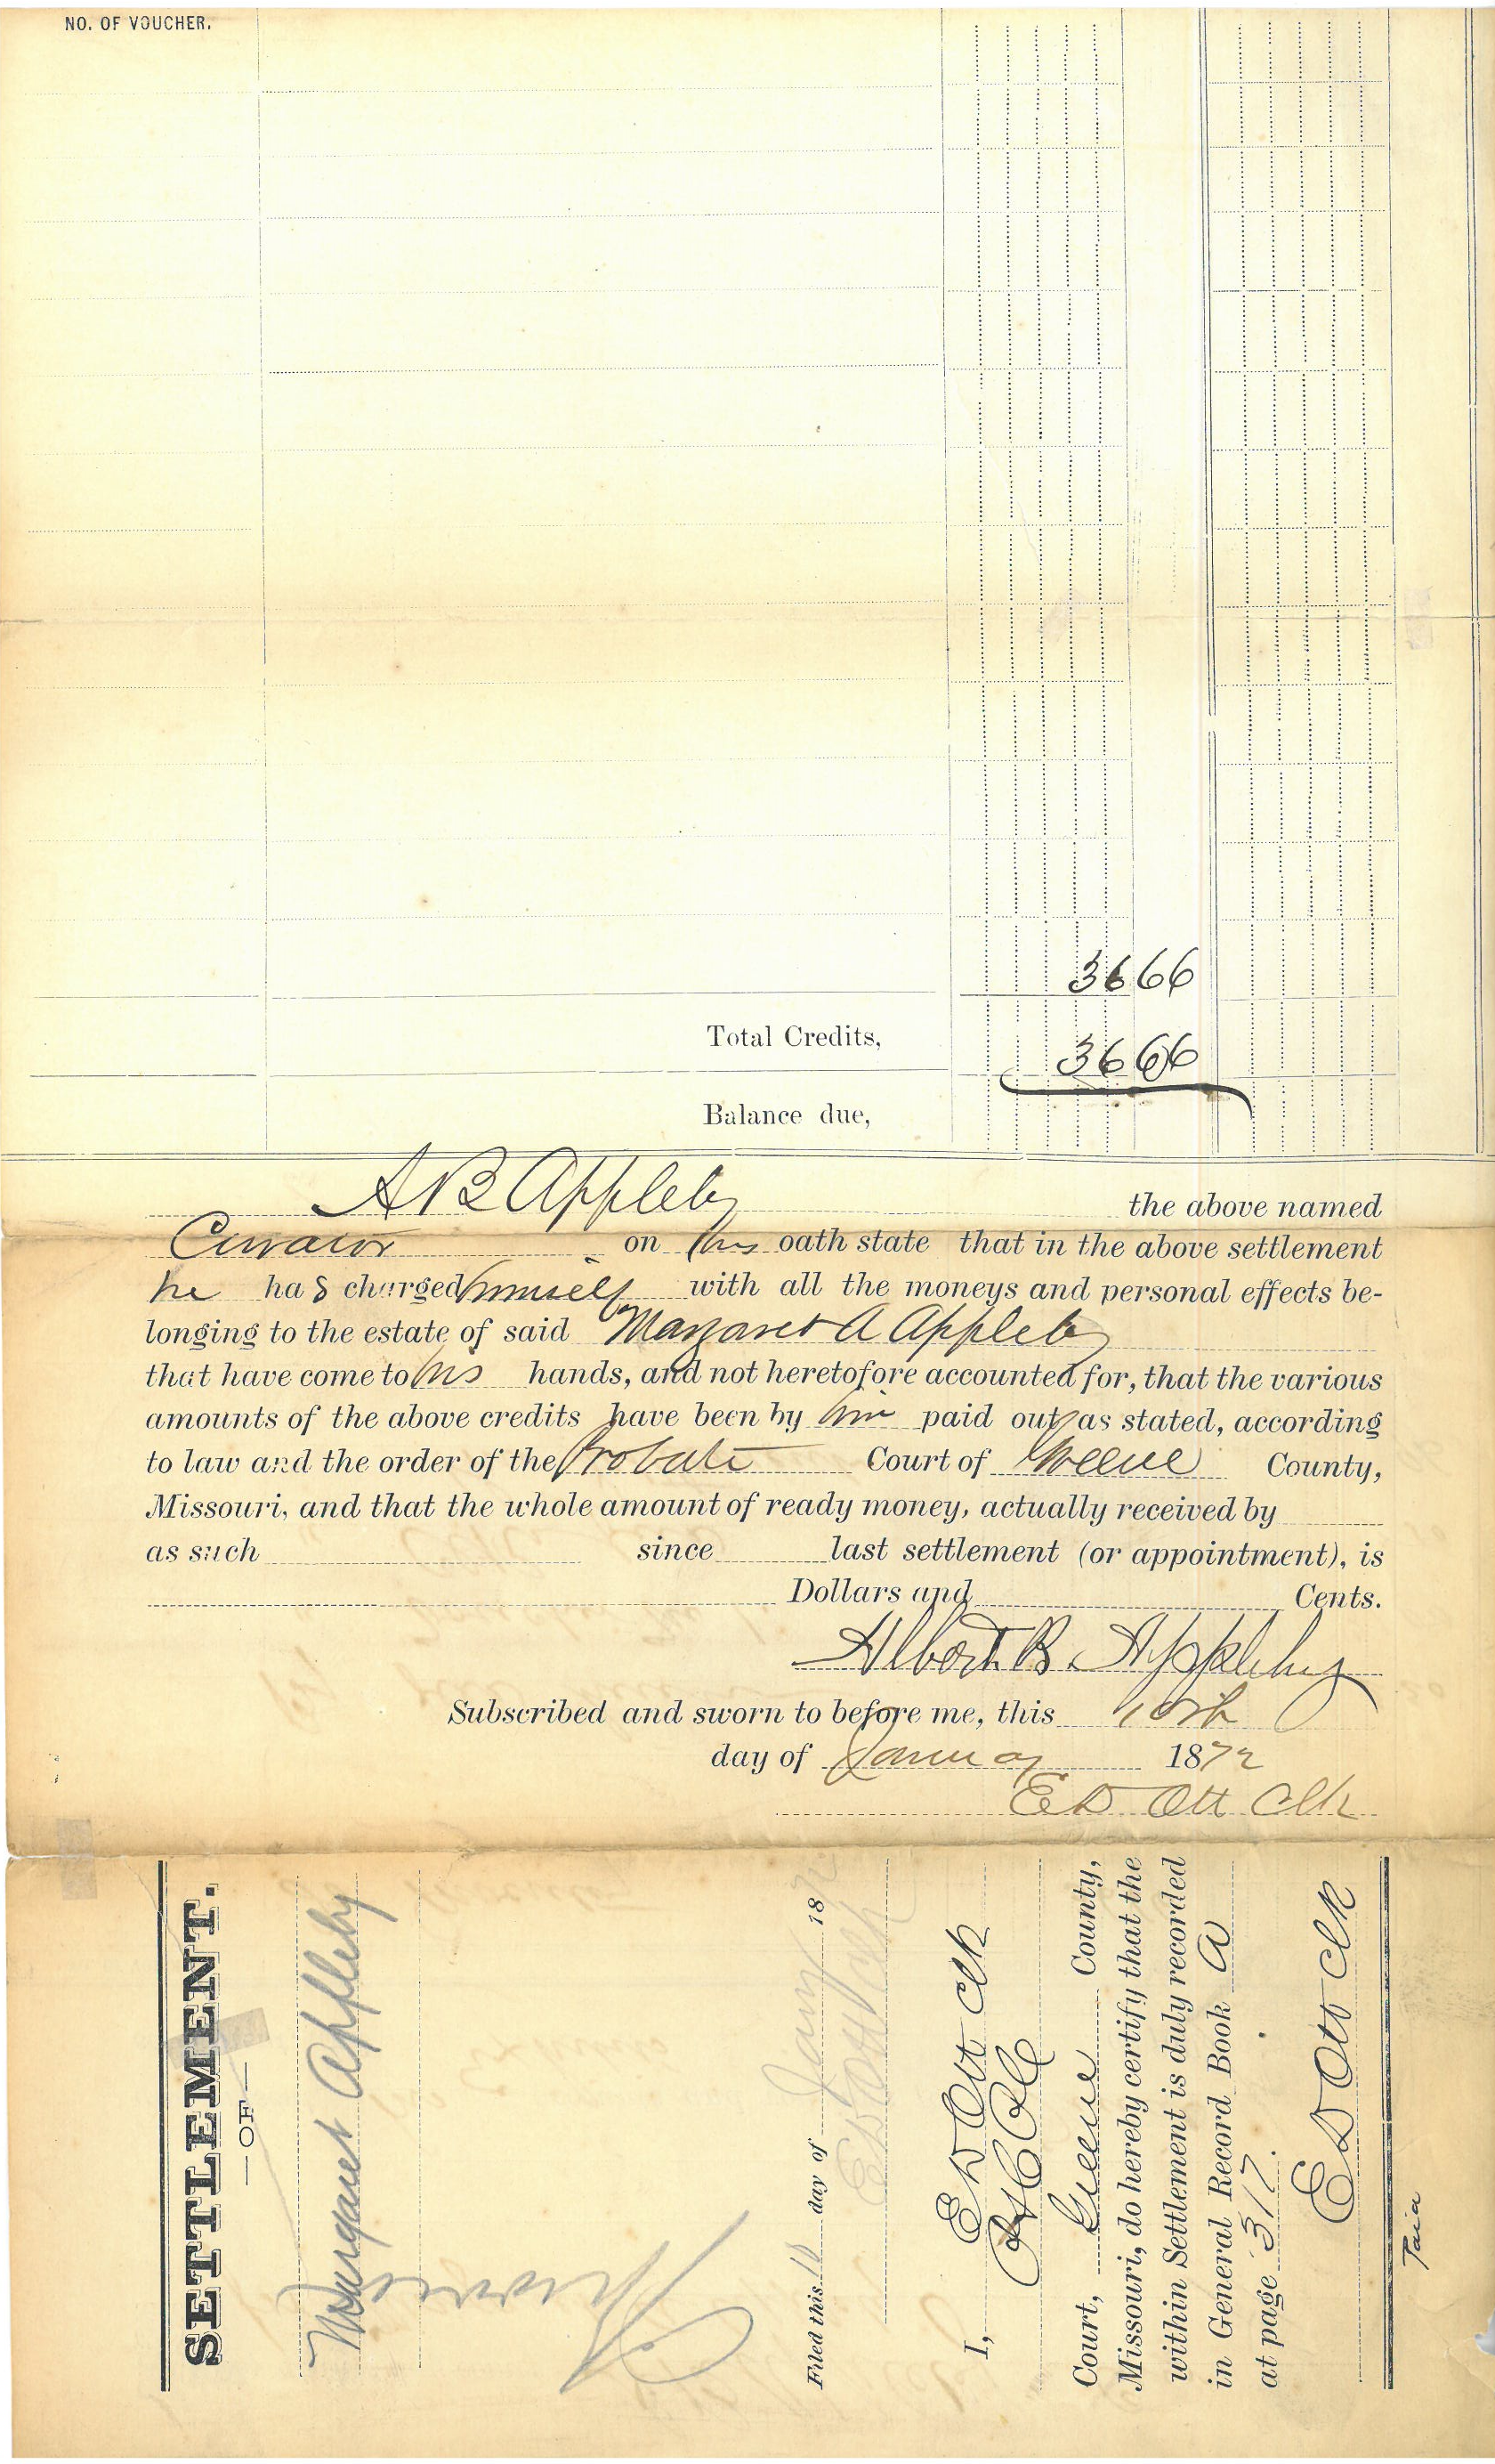 NO. OF VOUCHER.
3666
Total Credits, 3666
Balance due,
A B Appleby the above named
Curator on his oath state that in the above settlement
he has charged himself with all the moneys and personal effects be-
longing to the estate of said Margaret A Appleby
that have come to his hands, and not heretofore accounted for, that the various
amounts of the above credits have been by him paid out as stated, according
to law and the order of the Probate Court of Greene County,
Missouri, and that the whole amount of ready money, actually received by
as such since last settlement (or appointment), is
Dollars and Cents.
Albert B. Appleby
Subscribed and sworn to before me, this 10th
day of January 1872
E D Ott Clk
SETTLEMENT.
— OF —
Margaret Appleby
Filed this 10 day of Jany 187
E D Ott Clk
I, E D Ott Clk
Court, Greene County,
Missouri, do hereby certify that the
within Settlement is duly recorded
in General Record Book A
at page 317.
E D Ott Clk
Paid